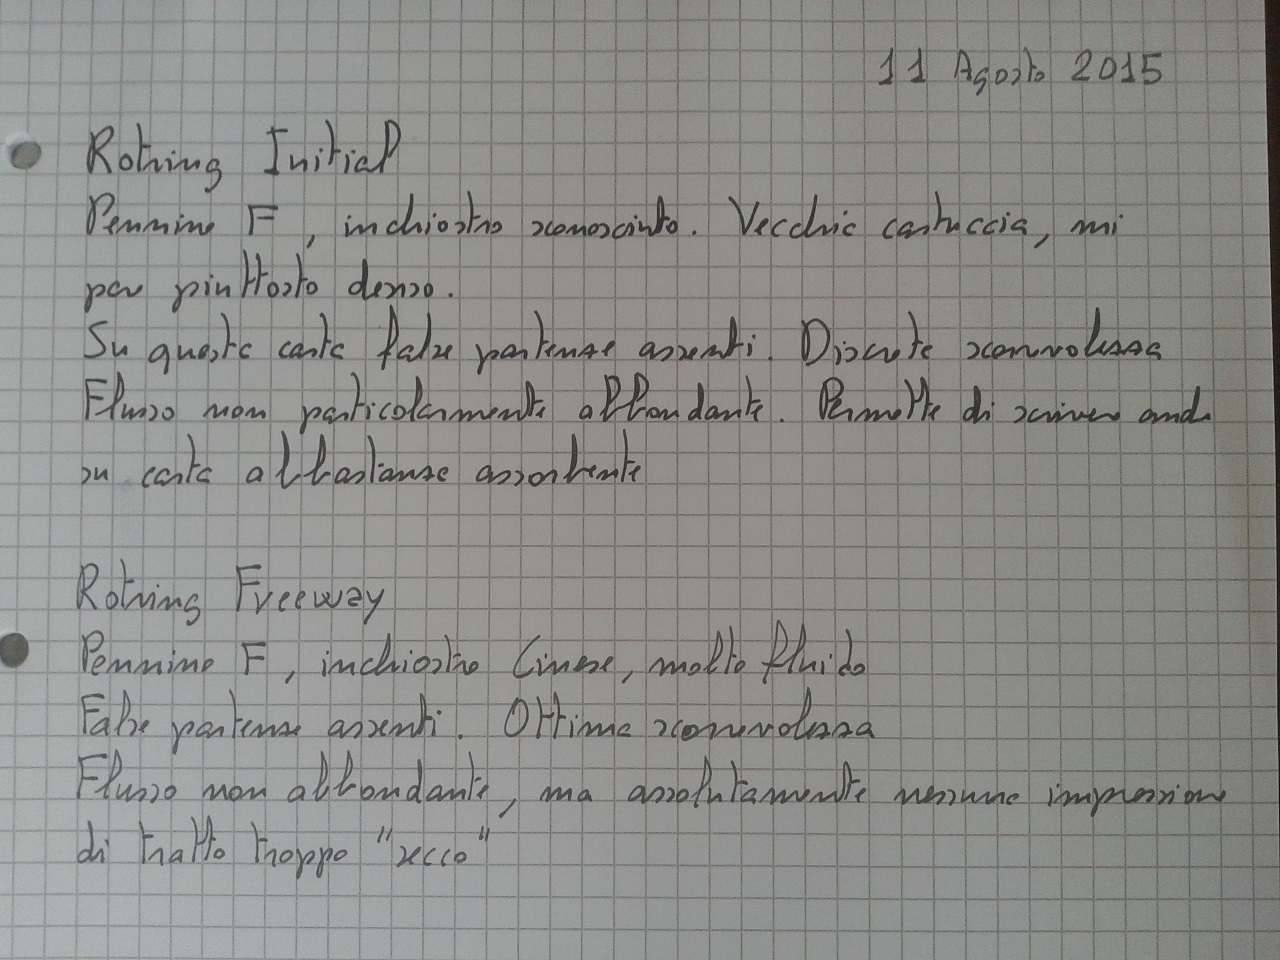 11 Agosto 2015
Rotring Initial
Pennino F, inchiostro sconosciuto. Vecchia cartuccia, mi
par piuttosto denso.
Su questa carta false partenze assenti. Discreta scorrevolezza
Flusso non particolarmente abbondante. Permette di scrivere anche
su carta abbastanza assorbente
Rotring Freeway
Pennino F, inchiostro Cinese, molto fluido
False partenze assenti. Ottima scorrevolezza
Flusso non abbondante, ma assolutamente nessuna impressione
di tratto troppo "secco"